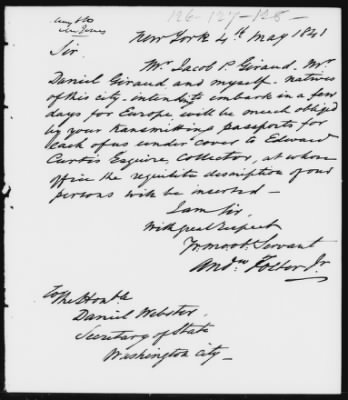 126-127-128-
New York 4th May 1841
Sir.
Mr. Jacob P. Giraud. Mr.
Daniel Giraud and myself - natives
of this city - intending to embark in a few
days for Europe, will be much obliged
by your transmitting passports for
each of us under cover to Edward
Curtis Esquire, Collector, at whose
office the requisite description of our
persons will be inserted -
I am Sir,
With great respect
Yr. mo. ob. Servant
Andw. Foster Jr.
To The Honble
Daniel Webster,
Secretary of State
Washington City -